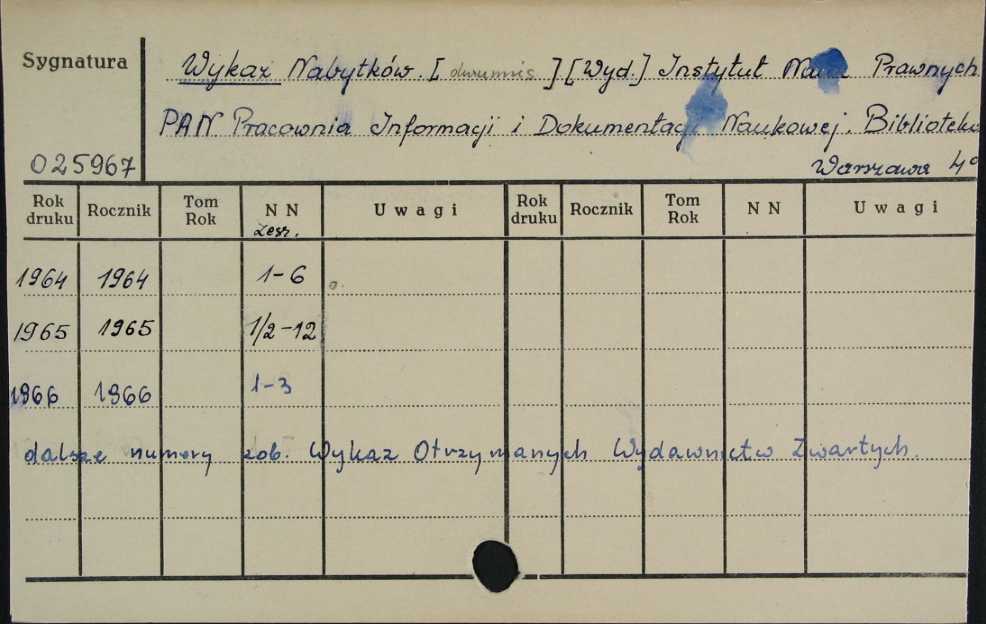 Sygnatura
Wykaz Nabytków. [ dwumies ] [Wyd.] Instytut Nauk Prawnych
PAN. Pracownia Informacji i Dokumentacji Naukowej. Biblioteka
025967
Warszawa 4°
Rok druku Rocznik Tom Rok NN zesz. Uwagi Rok druku Rocznik Tom Rok NN Uwagi
1964 1964 1-6
1965 1965 1/2-12
1966 1966 1-3
dalsze numery zob. Wykaz Otrzymanych Wydawnictw Zwartych.